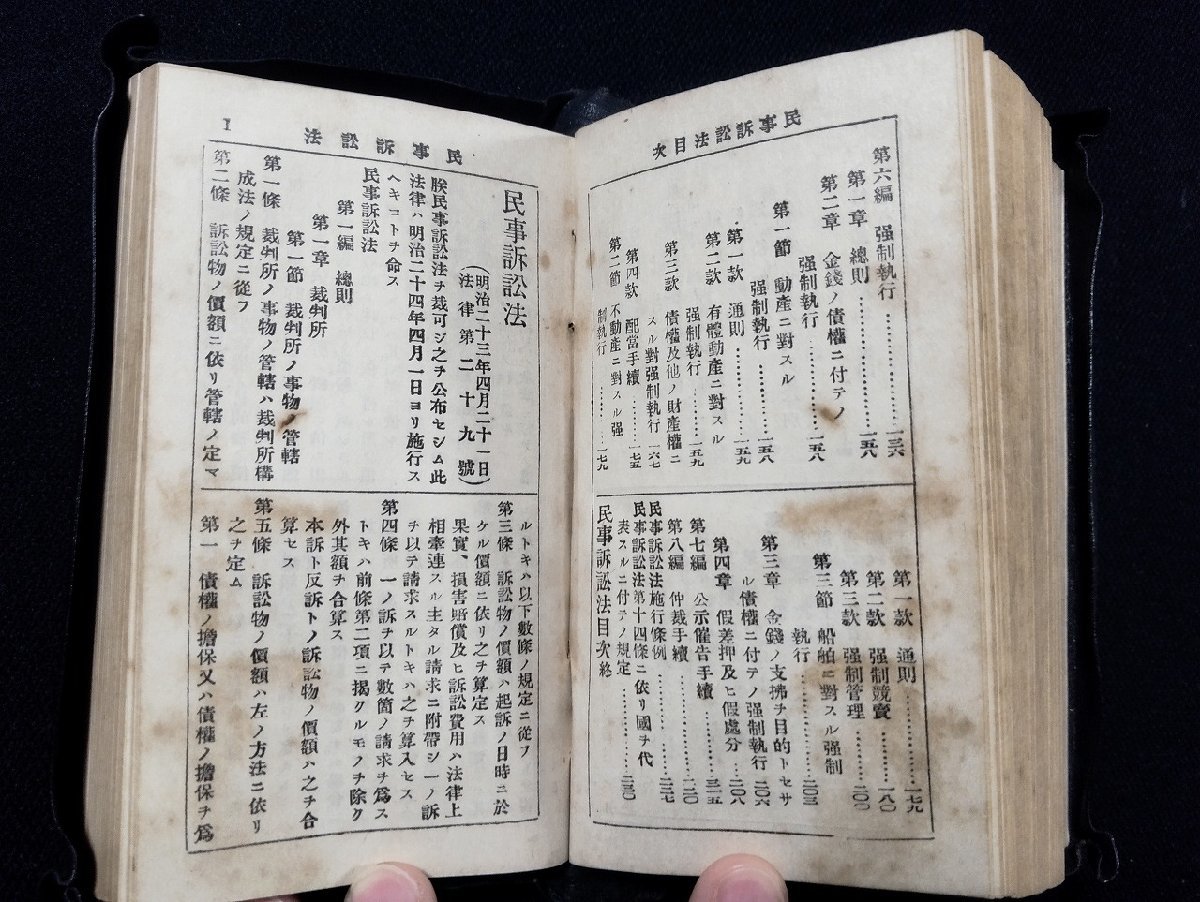 民事訴訟法目次
第六編 强制執行…………一三六
第一章 總則…………一五八
第二章 金錢ノ債權ニ付テノ
强制執行…………一五八
第一節 動產ニ對スル
强制執行…………一五八
第一款 通則…………一五九
第二款 有體動產ニ對スル
强制執行…………一五九
第三款 債權及他ノ財產權ニ
スル對强制執行…一六七
第四款 配當手續…………一七五
第二節 不動產ニ對スル强
制執行…………一七九
第一款 通則…………一七九
第二款 强制競賣…………一八〇
第三款 强制管理…………二〇〇
第三節 船舶ニ對スル强制
執行…………二〇三
第三章 金錢ノ支拂ヲ目的トセサ
ル債權ニ付テノ强制執行 二〇六
第四章 假差押及ヒ假處分…二〇八
第七編 公示催告手續…………三一五
第八編 仲裁手續…………二二〇
民事訴訟法施行條例…………二二七
民事訴訟法第十四條ニ依リ國ヲ代
表スルニ付テノ規定…………二三〇
民事訴訟法目次終
民事訴訟法
1
民事訴訟法
(明治二十三年四月二十一日)
(法律第二十九號)
朕民事訴訟法ヲ裁可シ之ヲ公布セシム此
法律ハ明治二十四年四月一日ヨリ施行ス
ヘキコトヲ命ス
民事訴訟法
第一編 總則
第一章 裁判所
第一節 裁判所ノ事物ノ管轄
第一條 裁判所ノ事物ノ管轄ハ裁判所構
成法ノ規定ニ從フ
第二條 訴訟物ノ價額ニ依リ管轄ノ定マ
ルトキハ以下數條ノ規定ニ從フ
第三條 訴訟物ノ價額ハ起訴ノ日時ニ於
ケル價額ニ依リ之ヲ算定ス
果實、損害賠償及ヒ訴訟費用ハ法律上
相牽連スル主タル請求ニ附帶シ一ノ訴
ヲ以テ請求スルトキハ之ヲ算入セス
第四條 一ノ訴ヲ以テ數箇ノ請求ヲ爲ス
トキハ前條第二項ニ揭クルモノヲ除ク
外其額ヲ合算ス
本訴ト反訴トノ訴訟物ノ價額ハ之ヲ合
算セス
第五條 訴訟物ノ價額ハ左ノ方法ニ依リ
之ヲ定ム
第一 債權ノ擔保又ハ債權ノ擔保ヲ爲